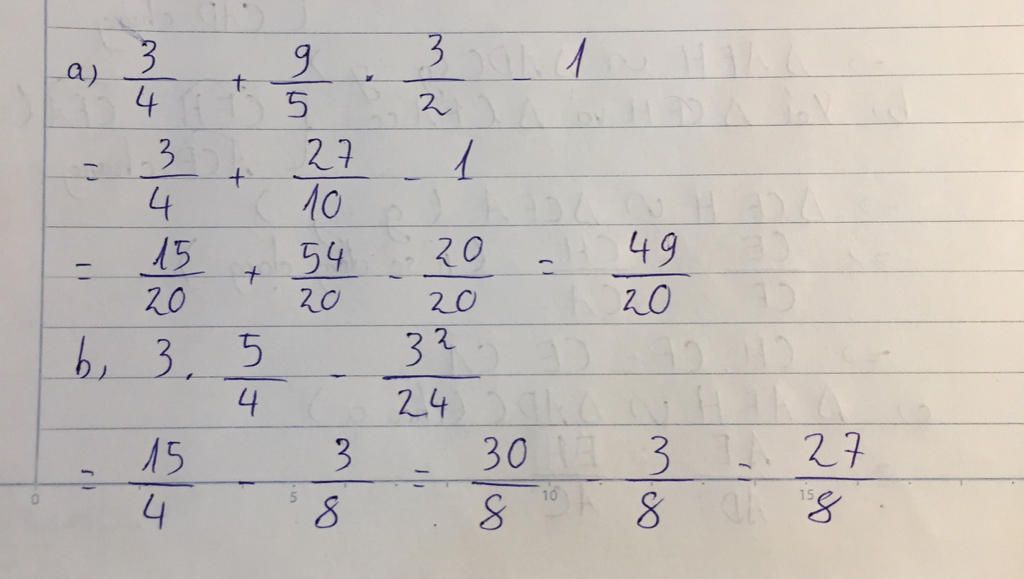 a) 3/4 + 9/5 . 3/2 - 1
= 3/4 + 27/10 - 1
= 15/20 + 54/20 - 20/20 = 49/20
b, 3 . 5/4 - 3²/24
= 15/4 - 3/8 = 30/8 - 3/8 = 27/8
0 5 10 15